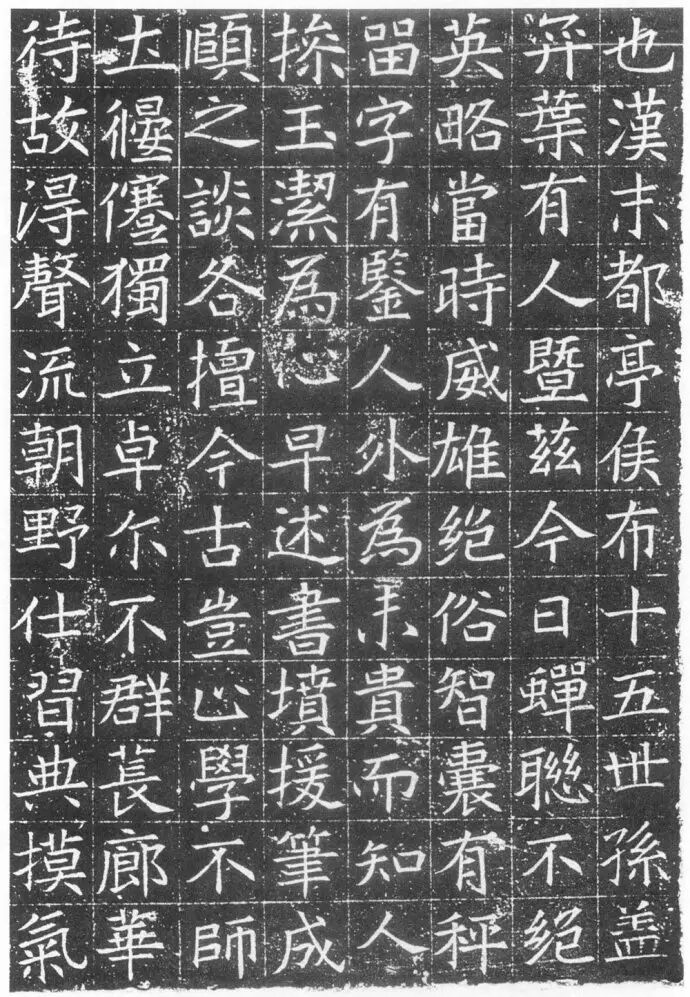 也漢末都亭侯布十五世孫盖
弈葉有人暨茲今日蟬聯不絕
英略當時威雄絕俗智囊有秤
留字有鑒人外為未貴而知人
操玉潔為心早述書墳援筆成
頤之談各擅今古豈止學不師
士偃蹇獨立卓尔不群萇廊華
待故淂聲流朝野仕習典摸氣